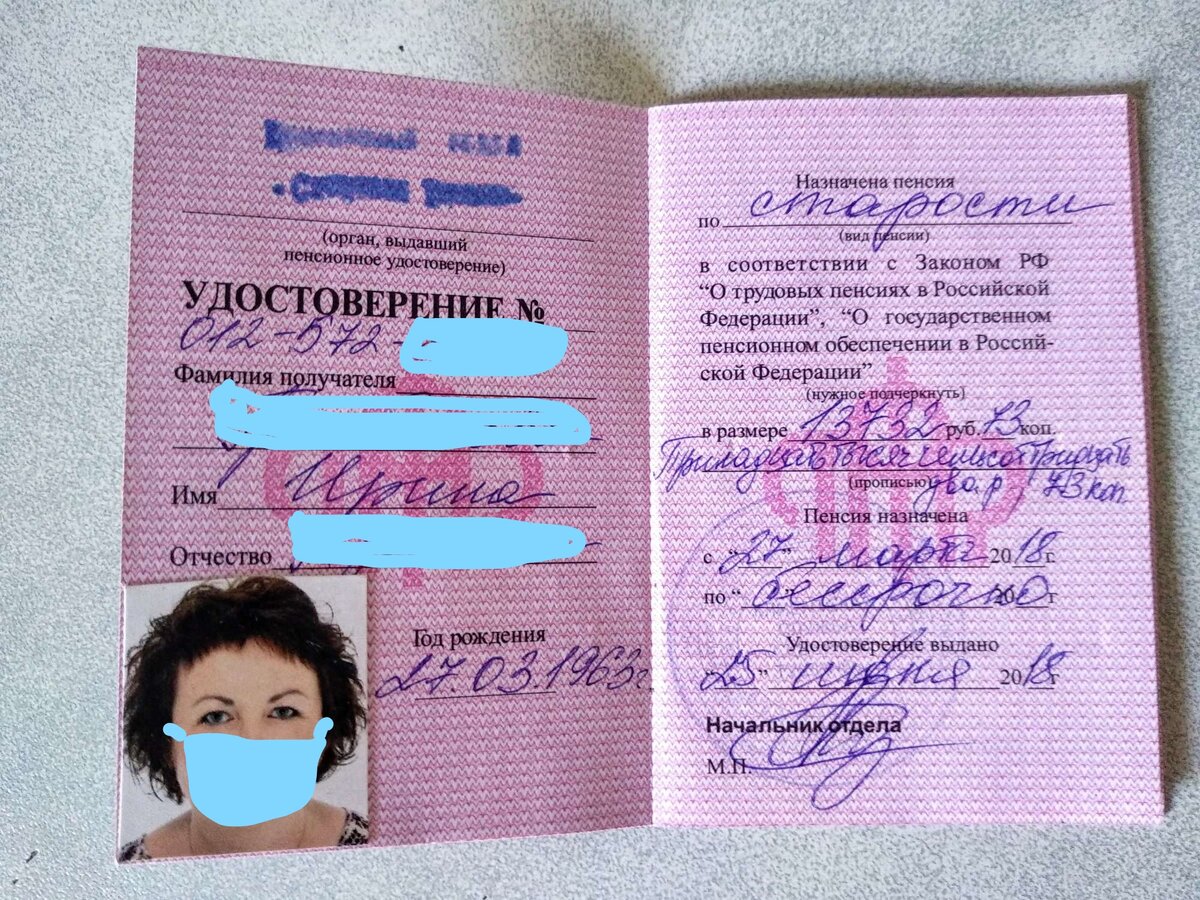 (орган, выдавший
пенсионное удостоверение)
УДОСТОВЕРЕНИЕ №
012-572-
Фамилия получателя
Имя Ирина
Отчество
Год рождения
27.03.1963г.
Назначена пенсия
по старости
(вид пенсии)
в соответствии с Законом РФ
“О трудовых пенсиях в Российской
Федерации”, “О государственном
пенсионном обеспечении в Россий-
ской Федерации”
(нужное подчеркнуть)
в размере 13732 руб. 73 коп.
Тринадцать тысяч семьсот тридцать
(прописью) два р 73 коп
Пенсия назначена
с “27” марта 2018г.
по “ бессрочно 20 г
Удостоверение выдано
25” июня 2018г
Начальник отдела
М.П.